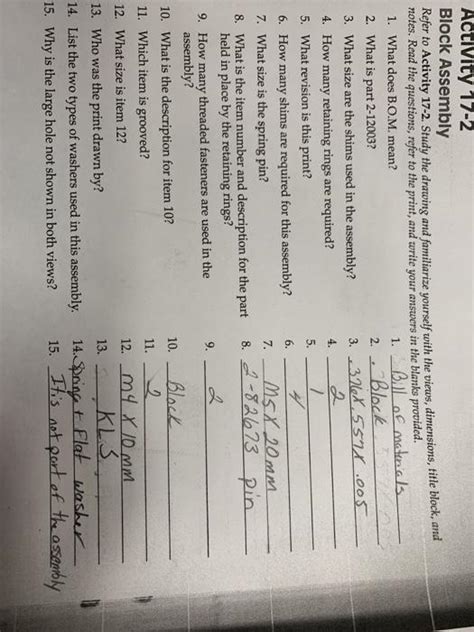 Activity 17-2
Block Assembly
Refer to Activity 17-2. Study the drawing and familiarize yourself with the views, dimensions, title block, and
notes. Read the questions, refer to the print, and write your answers in the blanks provided.
1. What does B.O.M. mean?
2. What is part 2-12003?
3. What size are the shims used in the assembly?
4. How many retaining rings are required?
5. What revision is this print?
6. How many shims are required for this assembly?
7. What size is the spring pin?
8. What is the item number and description for the part
held in place by the retaining rings?
9. How many threaded fasteners are used in the
assembly?
10. What is the description for item 10?
11. Which item is grooved?
12. What size is item 12?
13. Who was the print drawn by?
14. List the two types of washers used in this assembly.
15. Why is the large hole not shown in both views?
1. Bill of materials
2. Block
3. .376X.557X.005
4. 2
5. 1
6. 4
7. M5X20mm
8. 2-82673 pin
9. 2
10. Block
11. 2
12. m4 X 10 mm
13. KLS
14. Spring + Flat washer
15. It is not part of the assembly